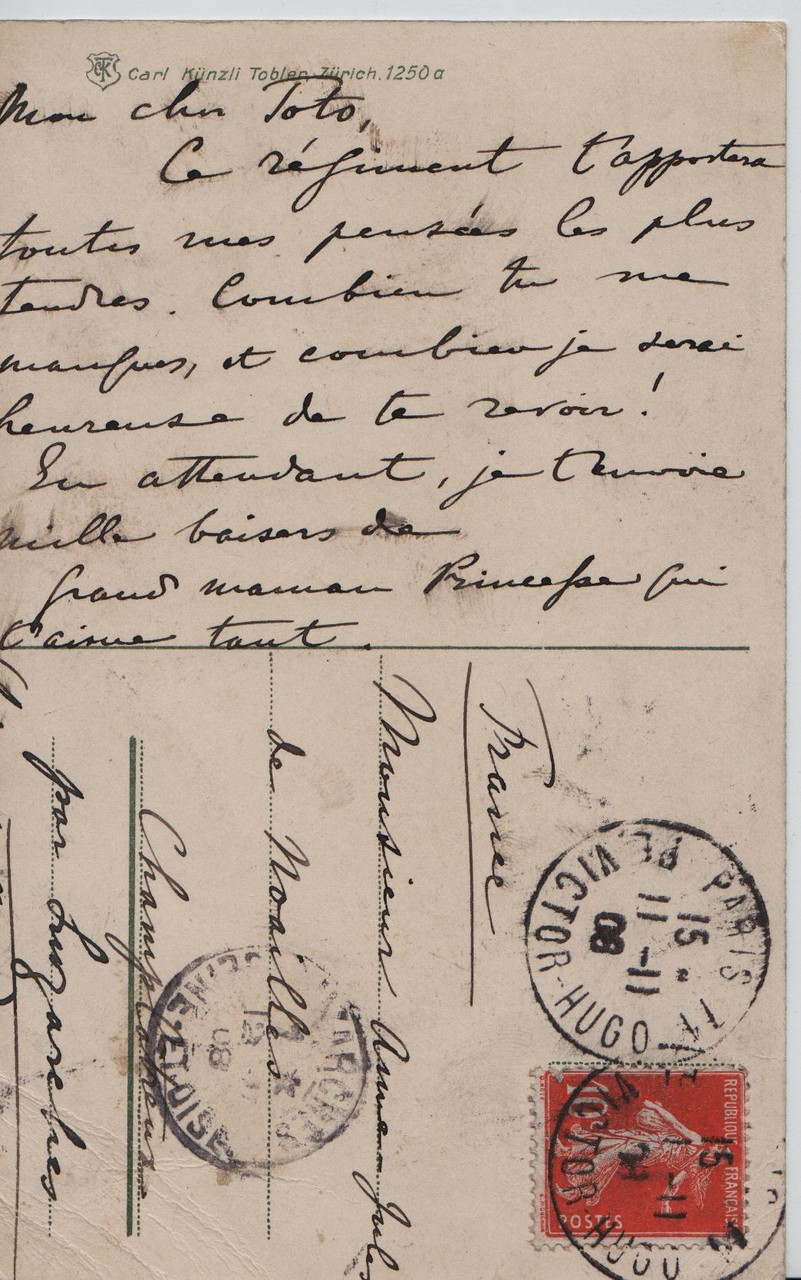 Carl Künzli Tobler, Zürich. 1250a
Mon cher Toto,
Ce régiment t'apportera
toutes mes pensées les plus
tendres. Combien tu me
manques, et combien je serai
heureuse de te revoir!
En attendant, je t'envoie
mille baisers de
grand maman Princesse qui
t'aime tant.
France
Monsieur Anne Jules
de Noailles
Champlatreux
par Luzarches
PARIS
15
11-11
08
VICTOR-HUGO
LUZARCHES
12
08
SEINE-ET-OISE
REPUBLIQUE FRANÇAISE
10
POSTES
15
11
VICTOR-HUGO